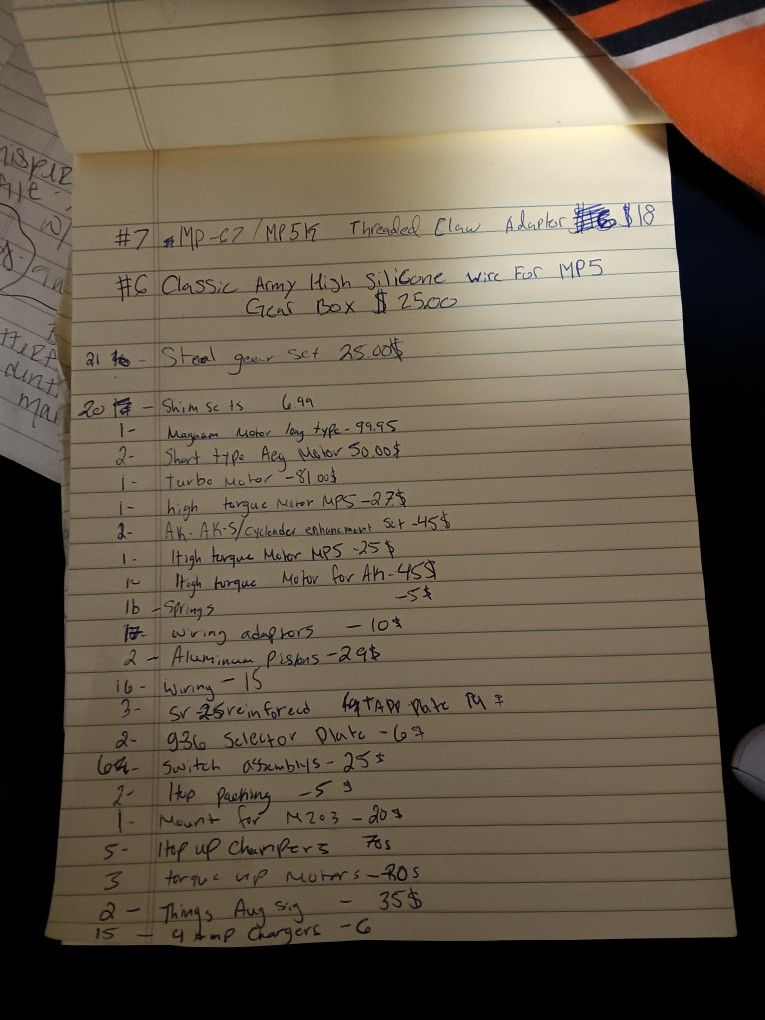 #7 MP-C7/MP5K Threaded Claw Adaptor $18
#6 Classic Army High Silicone wire For MP5
Gear Box $ 25.00
21 - Steel gear set 25.00$
20 - Shim sets 6.99
1- Magnam Motor long type - 99.95
2- Short type Aeg Motor 50.00$
1- Turbo Motor - 81.00$
1- high torque Motor MP5 - 27$
2- AK-AK-S/cyclender enhancment set - 45$
1- High torque Motor MP5 - 25$
High torque Motor for AK - 45$
16 - Springs - 5$
17- wiring adaptors - 10$
2 - Aluminum Pistons - 29$
16 - Wiring - 15
3- Sr-25 reinforced Plate 19$
2- G36 Selector Plate - 6$
switch assemblys - 25$
2- Hop packing - 5$
1- Mount for M203 - 20$
5- Hop up Champers 70s
3 torque up Motors - 80s
2 - Things Aug sig - 35$
15 - 4 Amp Chargers - 6
nisper
w/
mai